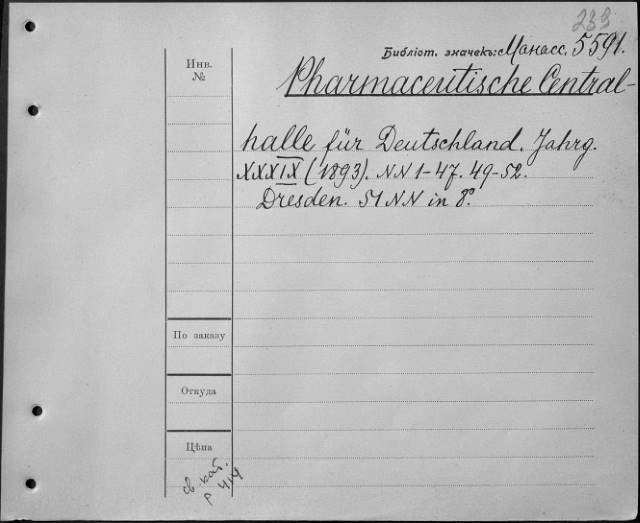 233
Библіот. значекъ: Манасс. 5591.
Инв.
№
Pharmaceutische Central-
halle für Deutschland. Jahrg.
XXXIX (1893). NN 1-47. 49-52.
Dresden. 51 NN in 8º.
По заказу
Откуда
Цѣна
св. кат.
р 414